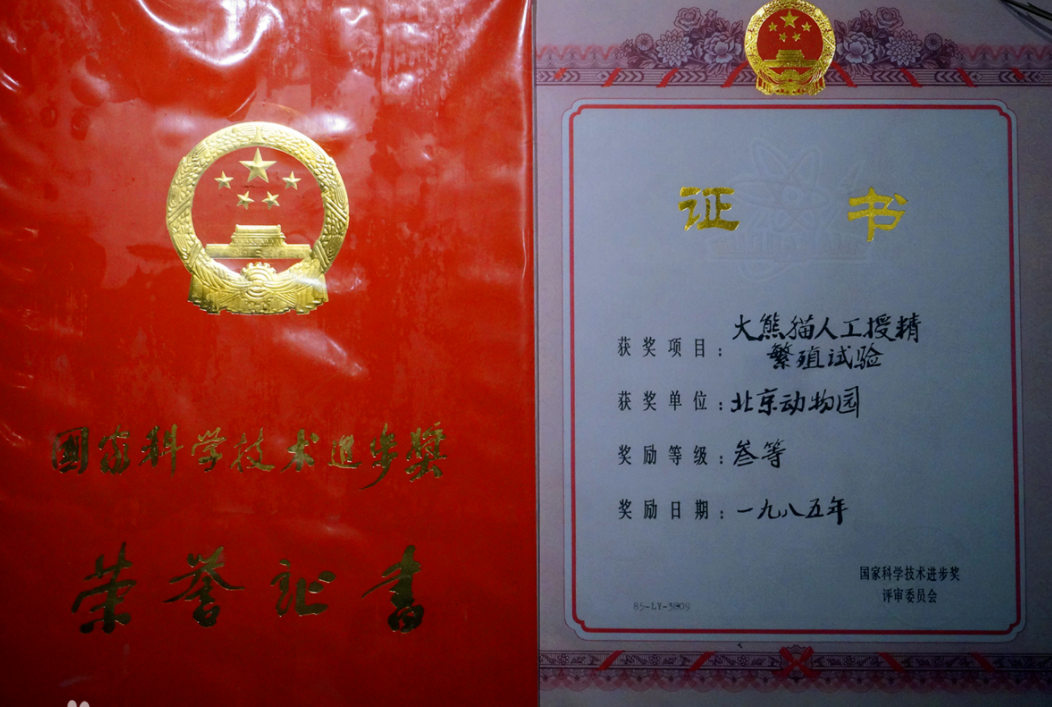 國家科学技术进步奖
荣誉证书
证书
获奖项目:大熊猫人工授精
繁殖试验
获奖单位:北京动物园
奖励等级:叁等
奖励日期:一九八五年
国家科学技术进步奖
评审委员会
85-LY-3-809